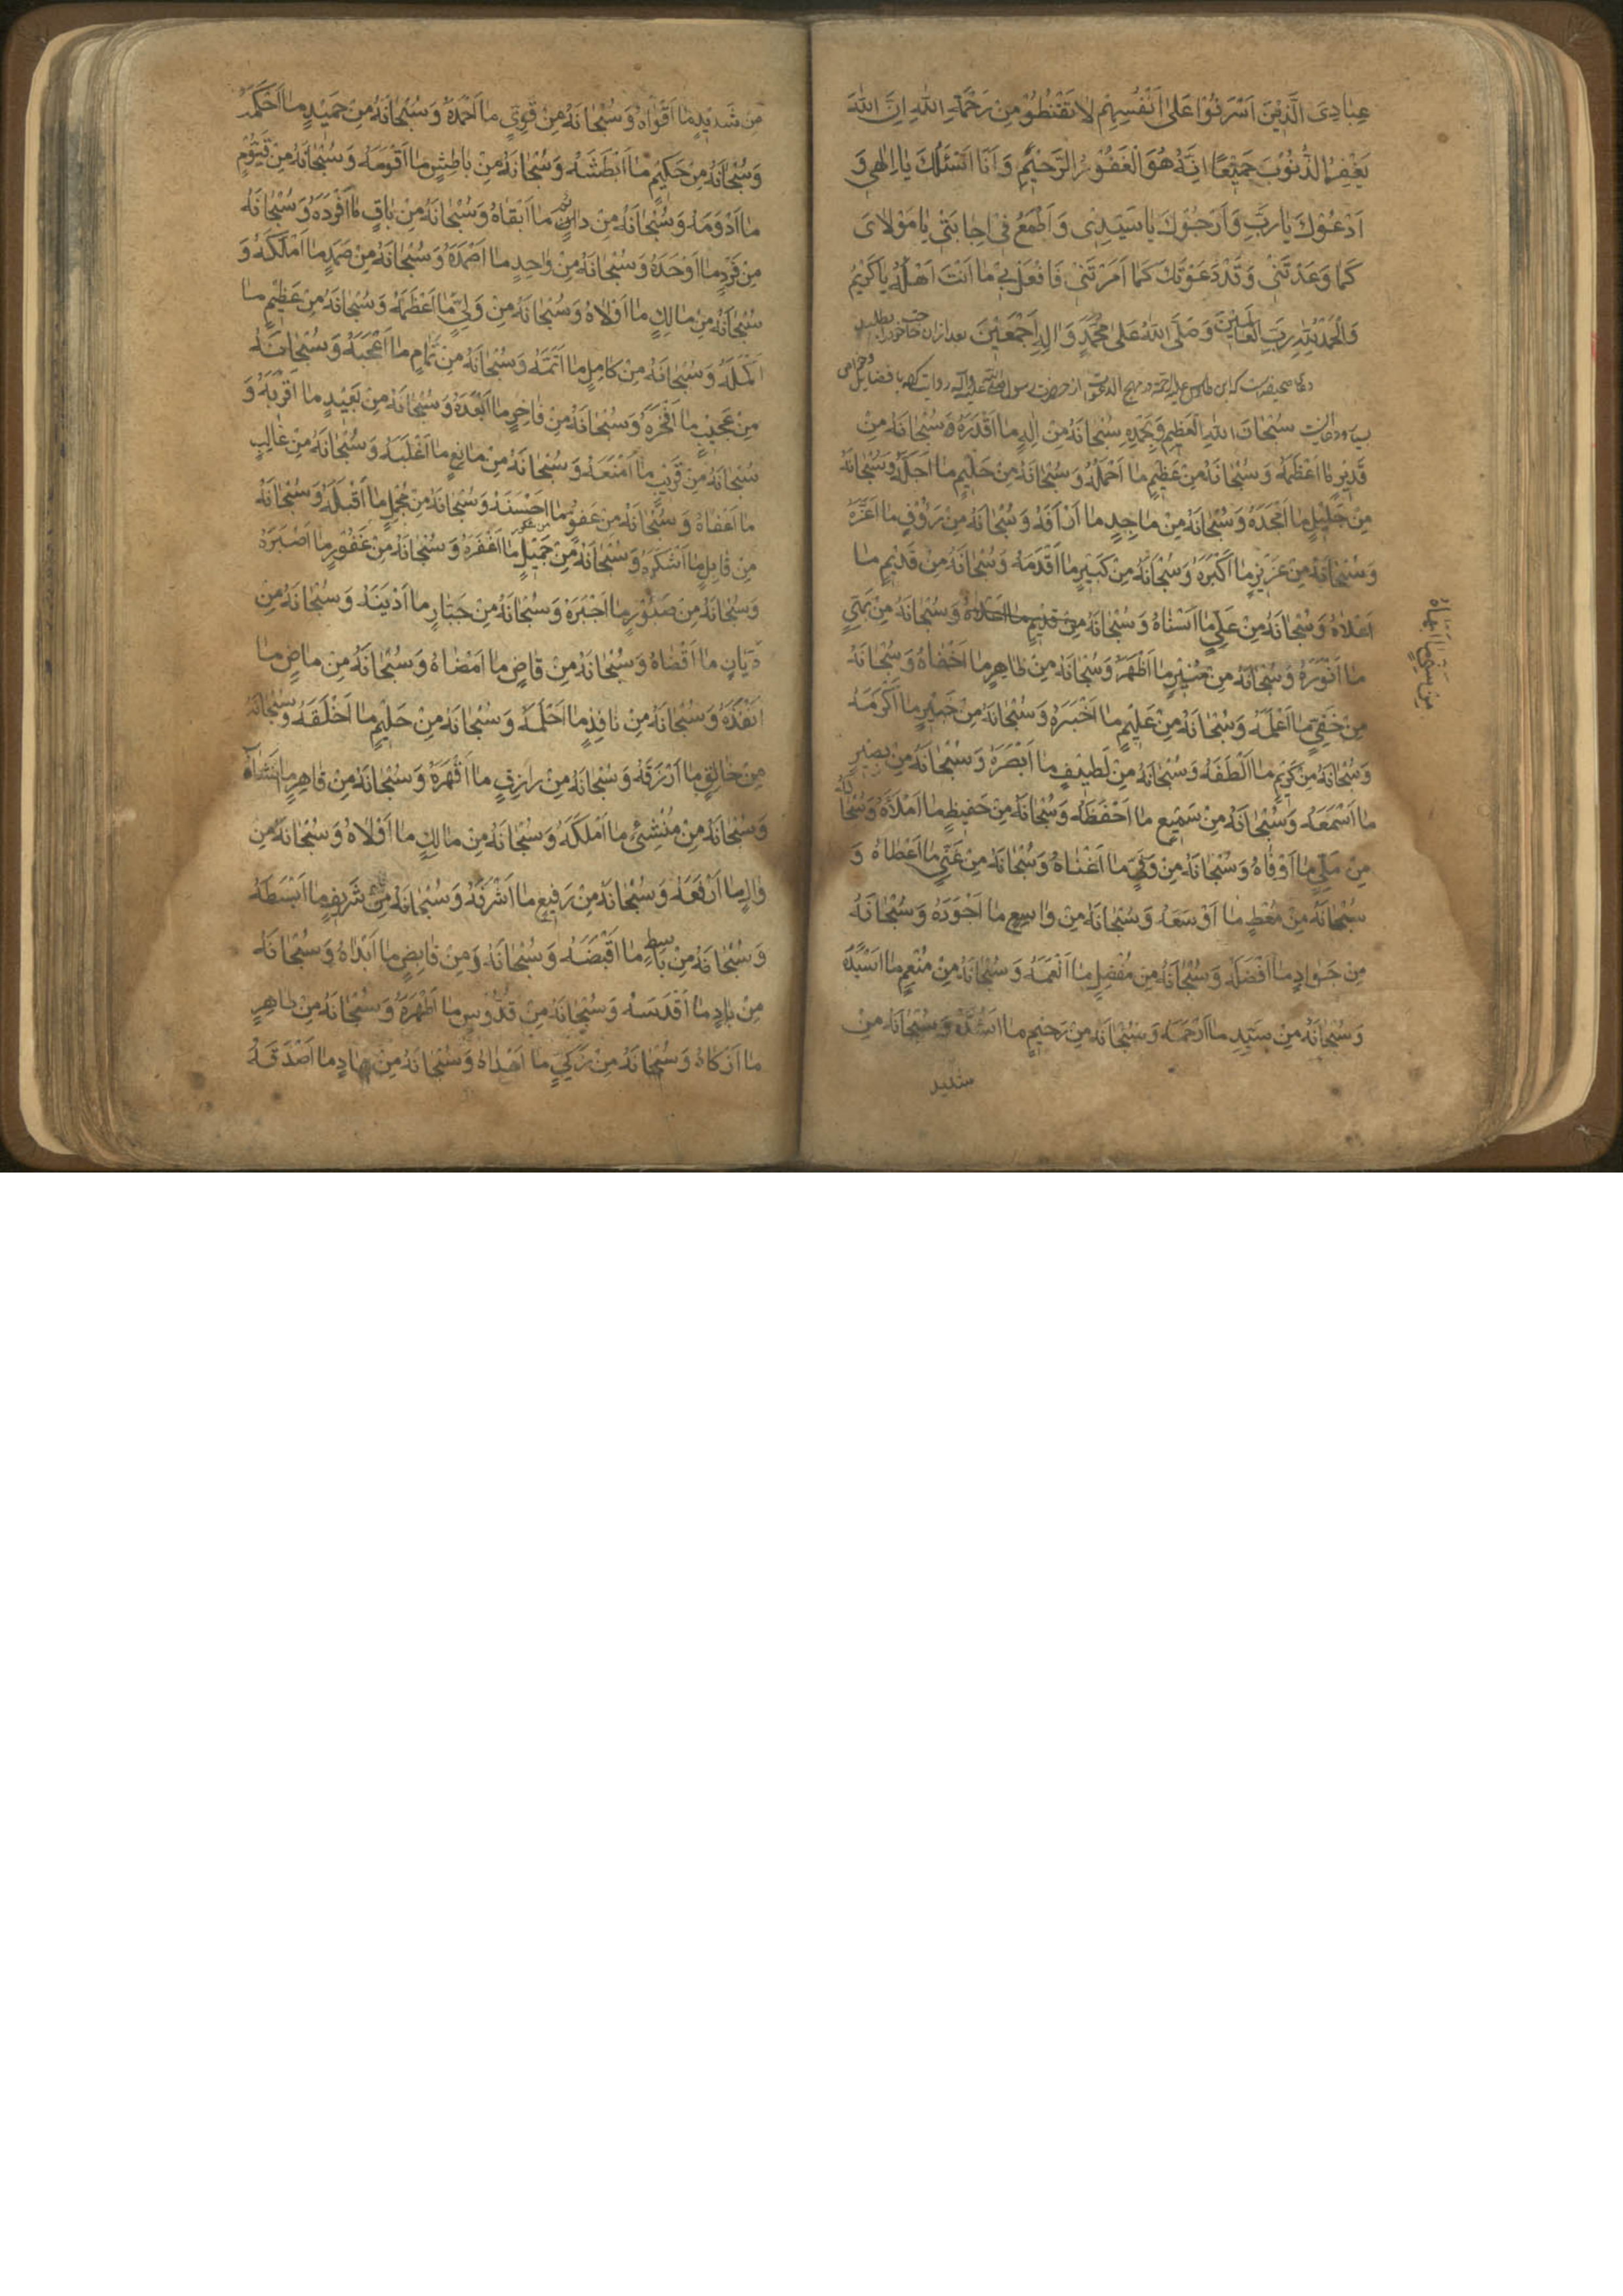 عِبَادِىَ الَّذِيْنَ اَسْرَفُوْا عَلىٰ اَنْفُسِهِمْ لٰا تَقْنَطُوْ مِنْ رَحْمَةِ اللهِ اِنَّ اللهَ
يَغْفِرُ الذُّنُوْبَ جَمِيْعًا اِنَّهُ هُوَ الْغَفُوْرُ الرَّحِيْمُ وَ اَنَا اَسْئَلُكَ يٰا اِلٰهِى وَ
اَدْعُوْكَ يٰا رَبِّ وَ اَرْجُوْكَ يٰا سَيِّدِىْ وَ اَطْمَعُ فِى اِجٰابَتِىْ يٰا مَوْلاٰىَ
كَمٰا وَعَدْتَنِىْ وَ قَدْ دَعَوْتُكَ كَمٰا اَمَرْتَنِىْ فَافْعَلْ بِىْ مٰا اَنْتَ اَهْلُهُ يٰا كَرِيْمُ
وَالْحَمْدُ لِلّٰهِ رَبِّ الْعٰالَمِيْنَ وَ صَلَّى اللهُ عَلىٰ مُحَمَّدٍ وَ اٰلِهِ اَجْمَعِيْنَ بعد از ان حاجت خود را بطلبد
دعاء صحيفه است كه ابن طاوس عليه الرحمة در مهج الدعوات از حضرت رسول صلى الله عليه وآله روايت كرده با فضايل
سُبْحٰانَ اللهِ الْعَظِيْمِ وَ بِحَمْدِهِ سُبْحٰانَهُ مِنْ اِلٰهٍ مٰا اَقْدَرَهُ وَ سُبْحٰانَهُ مِنْ
قَدِيْرٍ مٰا اَعْظَمَهُ وَ سُبْحٰانَهُ مِنْ عَظِيْمٍ مٰا اَحْلَمَهُ وَ سُبْحٰانَهُ مِنْ حَلِيْمٍ مٰا اَجَلَّهُ وَ سُبْحٰانَهُ
مِنْ جَلِيْلٍ مٰا اَمْجَدَهُ وَ سُبْحٰانَهُ مِنْ مٰاجِدٍ مٰا اَرْاَفَهُ وَ سُبْحٰانَهُ مِنْ رَؤُفٍ مٰا اَعَزَّهُ
وَ سُبْحٰانَهُ مِنْ عَزِيْزٍ مٰا اَكْبَرَهُ وَ سُبْحٰانَهُ مِنْ كَبِيْرٍ مٰا اَقْدَمَهُ وَ سُبْحٰانَهُ مِنْ قَدِيْمٍ مٰا
اَعْلاٰهُ وَ سُبْحٰانَهُ مِنْ عَلِىٍّ مٰا اَسْنٰاهُ وَ سُبْحٰانَهُ مِنْ قديم ما اعلاه وَ سُبْحٰانَهُ مِنْ بَهِىٍّ
من سنىٍّ ما ابهاهُ
مٰا اَنْوَرَهُ وَ سُبْحٰانَهُ مِنْ مُنِيْرٍ مٰا اَظْهَرَهُ وَ سُبْحٰانَهُ مِنْ ظٰاهِرٍ مٰا اَخْفٰاهُ وَ سُبْحٰانَهُ
مِنْ خَفِىٍّ مٰا اَعْلَمَهُ وَ سُبْحٰانَهُ مِنْ عَلِيْمٍ مٰا اَخْبَرَهُ وَ سُبْحٰانَهُ مِنْ خَبِيْرٍ مٰا اَكْرَمَهُ
وَ سُبْحٰانَهُ مِنْ كَرِيْمٍ مٰا اَلْطَفَهُ وَ سُبْحٰانَهُ مِنْ لَطِيْفٍ مٰا اَبْصَرَهُ وَ سُبْحٰانَهُ مِنْ بَصِيْرٍ
مٰا اَسْمَعَهُ وَ سُبْحٰانَهُ مِنْ سَمِيْعٍ مٰا اَحْفَظَهُ وَ سُبْحٰانَهُ مِنْ حَفِيظٍ مٰا اَمْلَاَهُ وَ سُبْحٰانَهُ
مِنْ مَلِىٍّ مٰا اَوْفٰاهُ وَ سُبْحٰانَهُ مِنْ وَفِىٍّ مٰا اَغْنٰاهُ وَ سُبْحٰانَهُ مِنْ غَنِىٍّ مٰا اَعْطٰاهُ وَ
سُبْحٰانَهُ مِنْ مُعْطٍ مٰا اَوْسَعَهُ وَ سُبْحٰانَهُ مِنْ وٰاسِعٍ مٰا اَجْوَدَهُ وَ سُبْحٰانَهُ
مِنْ جَوٰادٍ مٰا اَفْضَلَهُ وَ سُبْحٰانَهُ مِنْ مُفْضِلٍ مٰا اَنْعَمَهُ وَ سُبْحٰانَهُ مِنْ مُنْعِمٍ مٰا اَسْيَدَهُ
وَ سُبْحٰانَهُ مِنْ سَيِّدٍ مٰا اَرْحَمَهُ وَ سُبْحٰانَهُ مِنْ رَحِيْمٍ مٰا اَشَدَّهُ وَ سُبْحٰانَهُ مِنْ
شديد
مِنْ شَدِيْدٍ مٰا اَقْوٰاهُ وَ سُبْحٰانَهُ مِنْ قَوِىٍّ مٰا اَحْمَدَهُ وَ سُبْحٰانَهُ مِنْ حَمِيْدٍ مٰا اَحْكَمَهُ
وَ سُبْحٰانَهُ مِنْ حَكِيْمٍ مٰا اَبْطَشَهُ وَ سُبْحٰانَهُ مِنْ بٰاطِشٍ مٰا اَقْوَمَهُ وَ سُبْحٰانَهُ مِنْ قَيُّوْمٍ
مٰا اَدْوَمَهُ وَ سُبْحٰانَهُ مِنْ دٰائِمٍ مٰا اَبْقٰاهُ وَ سُبْحٰانَهُ مِنْ بٰاقٍ مٰا اَفْرَدَهُ وَ سُبْحٰانَهُ
مِنْ فَرْدٍ مٰا اَوْحَدَهُ وَ سُبْحٰانَهُ مِنْ وٰاحِدٍ مٰا اَصْمَدَهُ وَ سُبْحٰانَهُ مِنْ صَمَدٍ مٰا اَمْلَكَهُ وَ
سُبْحٰانَهُ مِنْ مٰالِكٍ مٰا اَوْلاٰهُ وَ سُبْحٰانَهُ مِنْ وَلِىٍّ مٰا اَعْظَمَهُ وَ سُبْحٰانَهُ مِنْ عَظِيْمٍ مٰا
اَكْمَلَهُ وَ سُبْحٰانَهُ مِنْ كٰامِلٍ مٰا اَتَمَّهُ وَ سُبْحٰانَهُ مِنْ تَمٰامٍ مٰا اَعْجَبَهُ وَ سُبْحٰانَهُ
مِنْ عَجِيْبٍ مٰا اَفْخَرَهُ وَ سُبْحٰانَهُ مِنْ فٰاخِرٍ مٰا اَبْعَدَهُ وَ سُبْحٰانَهُ مِنْ بَعِيْدٍ مٰا اَقْرَبَهُ وَ
سُبْحٰانَهُ مِنْ قَرِيْبٍ مٰا اَمْنَعَهُ وَ سُبْحٰانَهُ مِنْ مٰانِعٍ مٰا اَغْلَبَهُ وَ سُبْحٰانَهُ مِنْ غٰالِبٍ
مٰا اَعْفٰاهُ وَ سُبْحٰانَهُ مِنْ عَفُوٍّ مٰا اَحْسَنَهُ وَ سُبْحٰانَهُ مِنْ مُجْمِلٍ مٰا اَقْبَلَهُ وَ سُبْحٰانَهُ
مِنْ قٰابِلٍ مٰا اَشْكَرَهُ وَ سُبْحٰانَهُ مِنْ جَمِيْلٍ مٰا اَغْفَرَهُ وَ سُبْحٰانَهُ مِنْ غَفُوْرٍ مٰا اَصْبَرَهُ
وَ سُبْحٰانَهُ مِنْ صَبُوْرٍ مٰا اَجْبَرَهُ وَ سُبْحٰانَهُ مِنْ جَبّٰارٍ مٰا اَدْيَنَهُ وَ سُبْحٰانَهُ مِنْ
دَيّٰانٍ مٰا اَقْضٰاهُ وَ سُبْحٰانَهُ مِنْ قٰاضٍ مٰا اَمْضٰاهُ وَ سُبْحٰانَهُ مِنْ مٰاضٍ مٰا
اَنْفَذَهُ وَ سُبْحٰانَهُ مِنْ نٰافِذٍ مٰا اَحْلَمَهُ وَ سُبْحٰانَهُ مِنْ حَلِيْمٍ مٰا اَخْلَقَهُ وَ سُبْحٰانَهُ
مِنْ خٰالِقٍ مٰا اَرْزَقَهُ وَ سُبْحٰانَهُ مِنْ رٰازِقٍ مٰا اَقْهَرَهُ وَ سُبْحٰانَهُ مِنْ قٰاهِرٍ مٰا اَنْشَاَهُ
وَ سُبْحٰانَهُ مِنْ مُنْشِئٍ مٰا اَمْلَكَهُ وَ سُبْحٰانَهُ مِنْ مٰالِكٍ مٰا اَوْلاٰهُ وَ سُبْحٰانَهُ مِنْ
وٰالٍ مٰا اَرْفَعَهُ وَ سُبْحٰانَهُ مِنْ رَفِيعٍ مٰا اَشْرَفَهُ وَ سُبْحٰانَهُ مِنْ شَرِيفٍ مٰا اَبْسَطَهُ
وَ سُبْحٰانَهُ مِنْ بٰاسِطٍ مٰا اَقْبَضَهُ وَ سُبْحٰانَهُ وَ مِنْ قٰابِضٍ مٰا اَبْدٰاهُ وَ سُبْحٰانَهُ
مِنْ بٰادٍ مٰا اَقْدَسَهُ وَ سُبْحٰانَهُ مِنْ قُدُّوْسٍ مٰا اَطْهَرَهُ وَ سُبْحٰانَهُ مِنْ طٰاهِرٍ
مٰا اَزْكٰاهُ وَ سُبْحٰانَهُ مِنْ زَكِىٍّ مٰا اَهْدٰاهُ وَ سُبْحٰانَهُ مِنْ هٰادٍ مٰا اَصْدَقَهُ